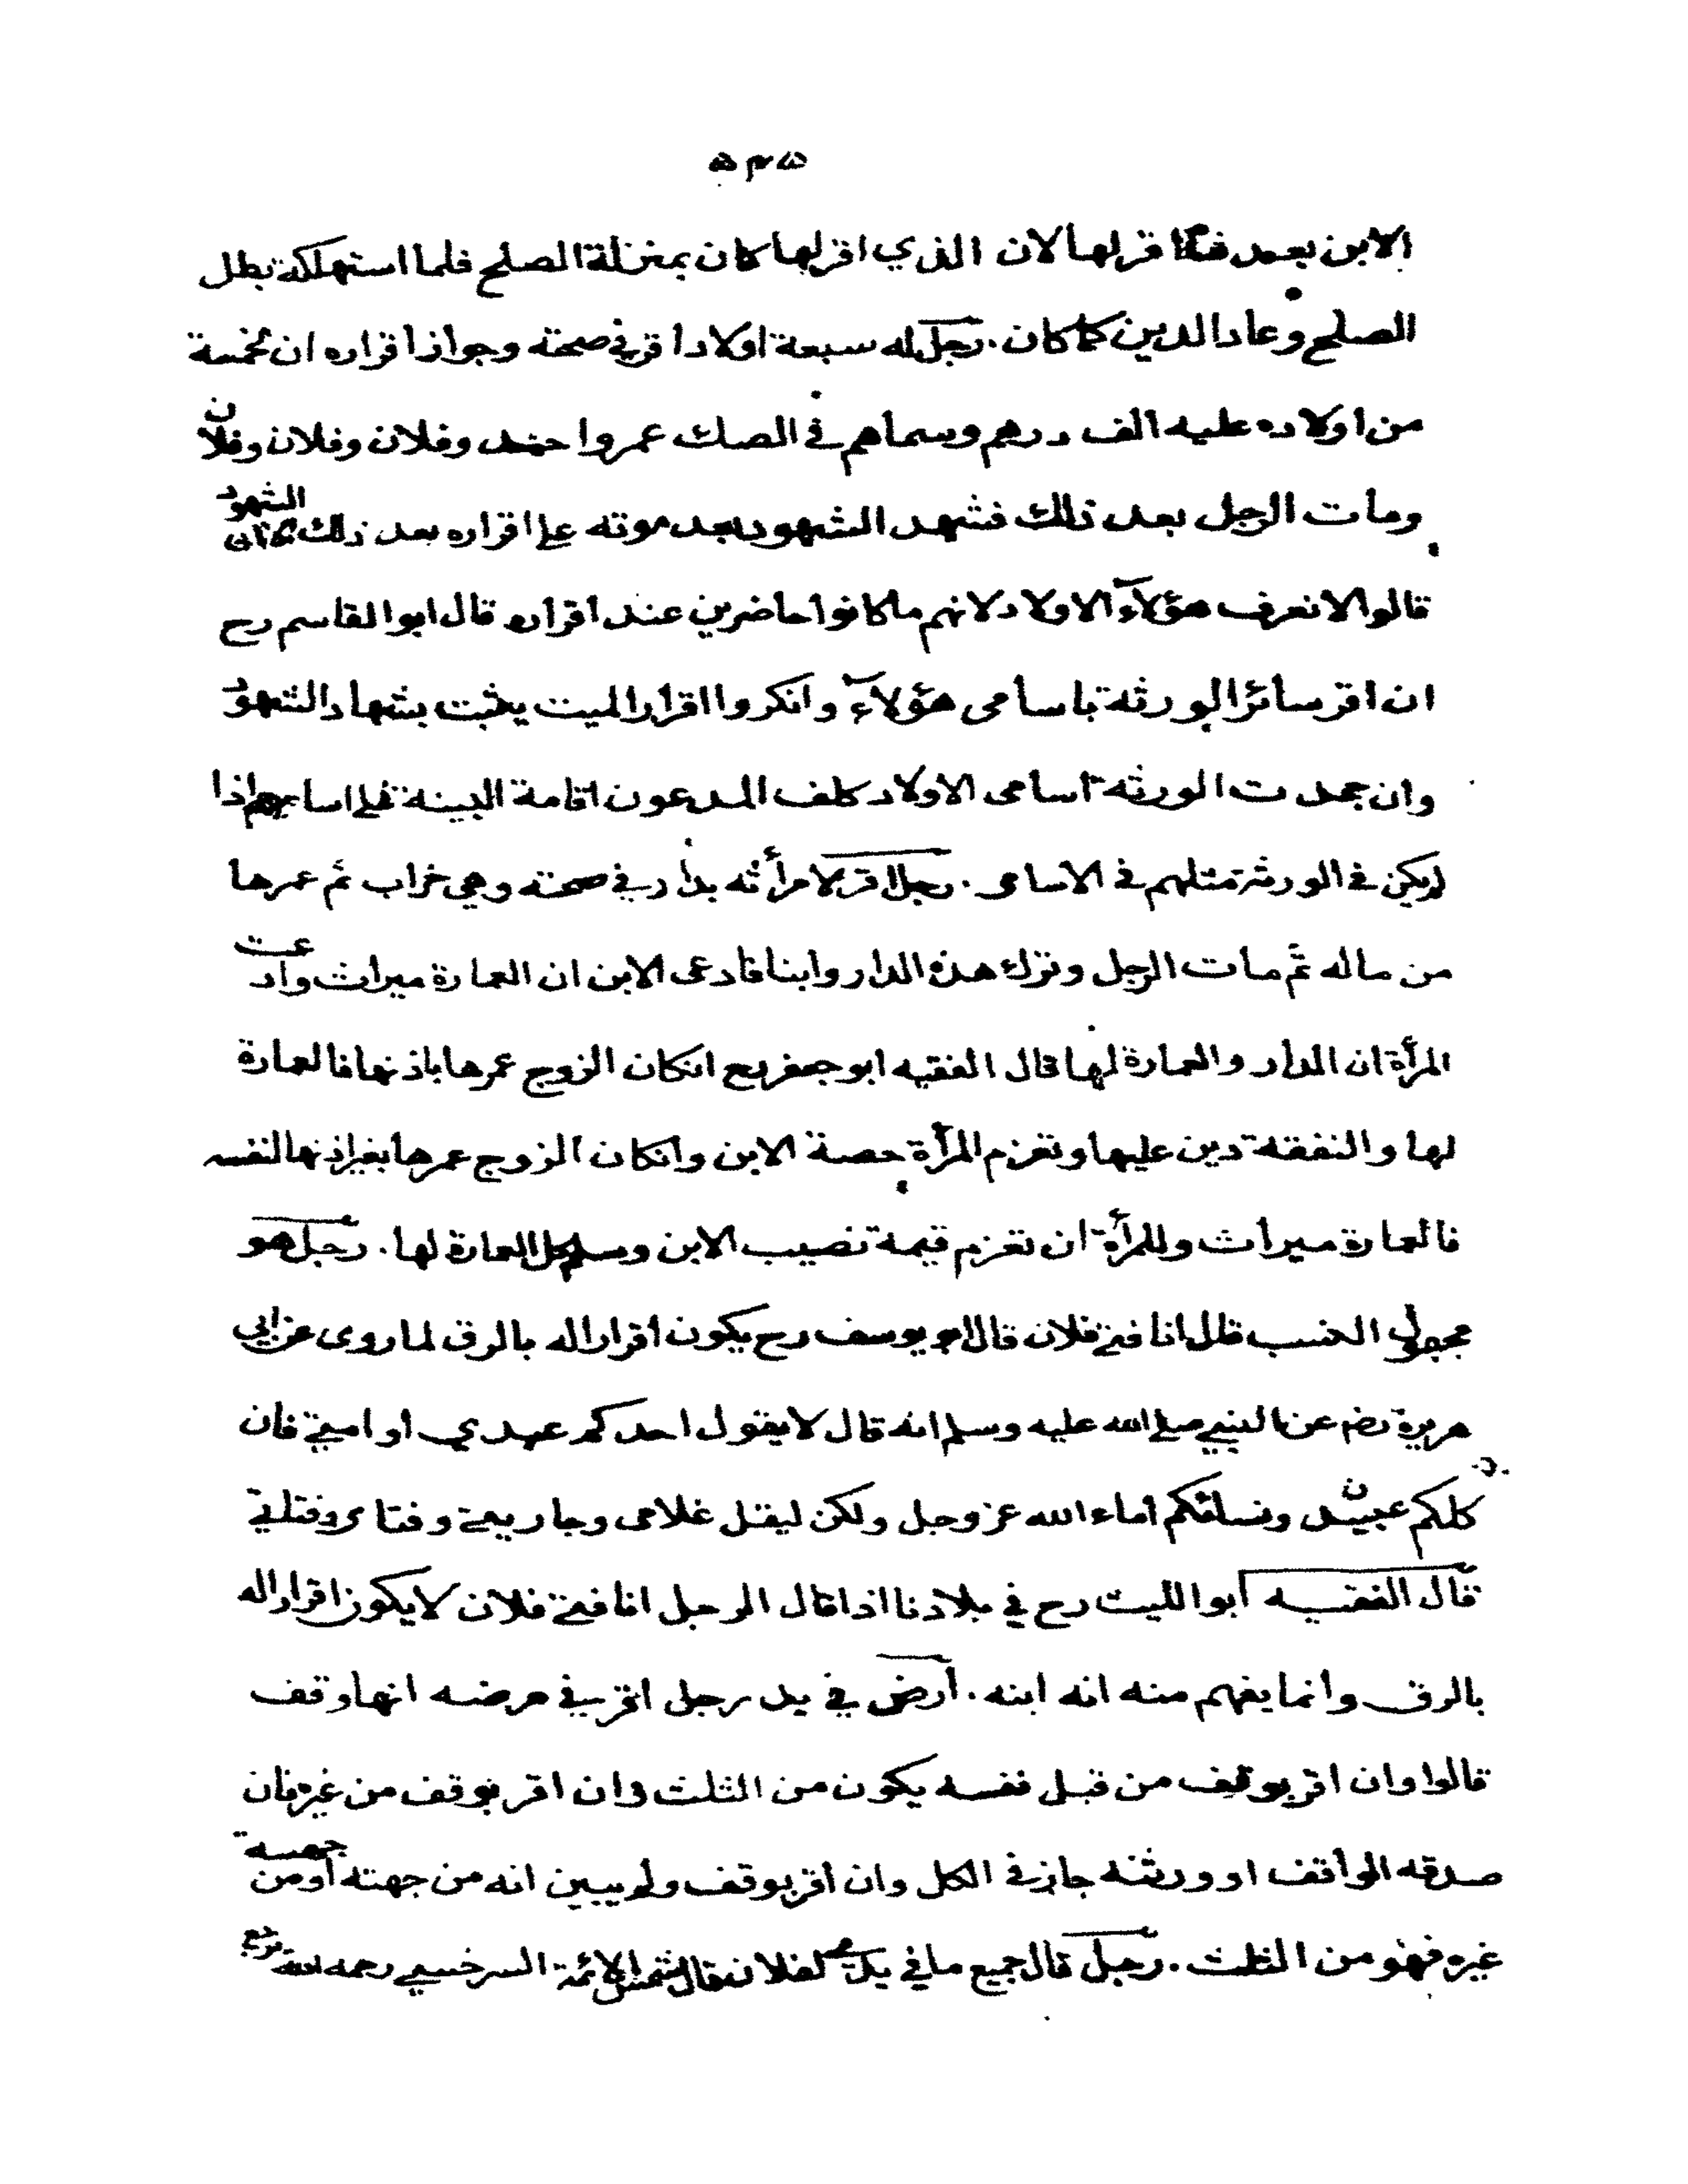 الابن بعد اقر لها لان الذي اقر لها كان بمنزلة الصلح فلما استهلكته بطل
الصلح وعاد الدين كما كان. رجل له سبعة اولاد اقر في صحته وجواز اقراره ان لخمسة
من اولاده عليه الف درهم وسماهم في الصك عمروا وفلان وفلان وفلان
ومات الرجل بعد ذلك فشهد الشهود بعد موته على اقراره بعد ذلك الشهود
قالوا لا نعرف هؤلاء الاولاد لانهم ما كانوا حاضرين عند اقراره قال ابوالقاسم رح
ان اقر سائر الورثة باسامى هؤلاء وانكروا اقرار الميت يثبت بشهاد الشهود
وان جحدت الورثة اسامى الاولاد كلف المدعون اقامة البينة على اساميهم اذا
لم يكن في الورثة مثلهم في الاسامى. رجل اقر لامرأته بدار في صحته وهي خراب ثم عمرها
من ماله ثم مات الرجل وترك هذه الدار وابنا فادعى الابن ان العمارة ميراث وادعت
المرأة ان الدار والعمارة لها قال الفقيه ابو جعفر رح انكان الزوج عمرها باذنها فالعمارة
لها والنفقة دين عليها وتغرم المرأة حصة الابن وانكان الزوج عمرها بغير اذنها لنفسه
فالعمارة ميراث وللمرأة ان تغرم قيمة نصيب الابن كل العمارة لها. رجل هو
مجهول النسب قال انا فتى فلان قال ابو يوسف رح يكون اقرارا له بالرق لما روى عن ابي
هريرة رضه عن النبي صلى الله عليه وسلم انه قال لا يقول احدكم عبدي او امتي فان
كلكم عبيد ونساؤكم اماء الله عز وجل ولكن ليقل غلامى وجاريتى وفتاى وفتاتي
قال الفقيه ابوالليث رح في بلادنا اذا قال الرجل انا فتى فلان لا يكون اقرارا له
بالرق وانما يفهم منه انه ابنه. أرض في يد رجل اقر في مرضه انها وقف
قالوا وان اقر بوقف من قبل نفسه يكون من الثلث وان اقر بوقف من غيره فان
صدقه الواقف او ورثته جاز في الكل وان اقر بوقف ولم يبين انه من جهته أو من جهة
غيره فهو من الثلث. رجل قال جميع ما في يدي لفلان قال شمس الائمة السرخسي رحمه الله